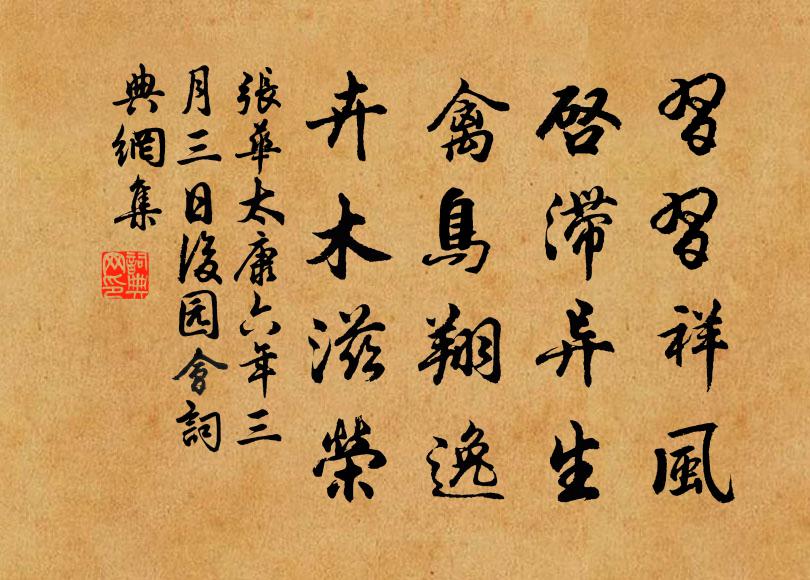 習習祥風
啓滯异生
禽鳥翔逸
卉木滋榮
張華太康六年三
月三日後园會詞
典網集
詞典
网印